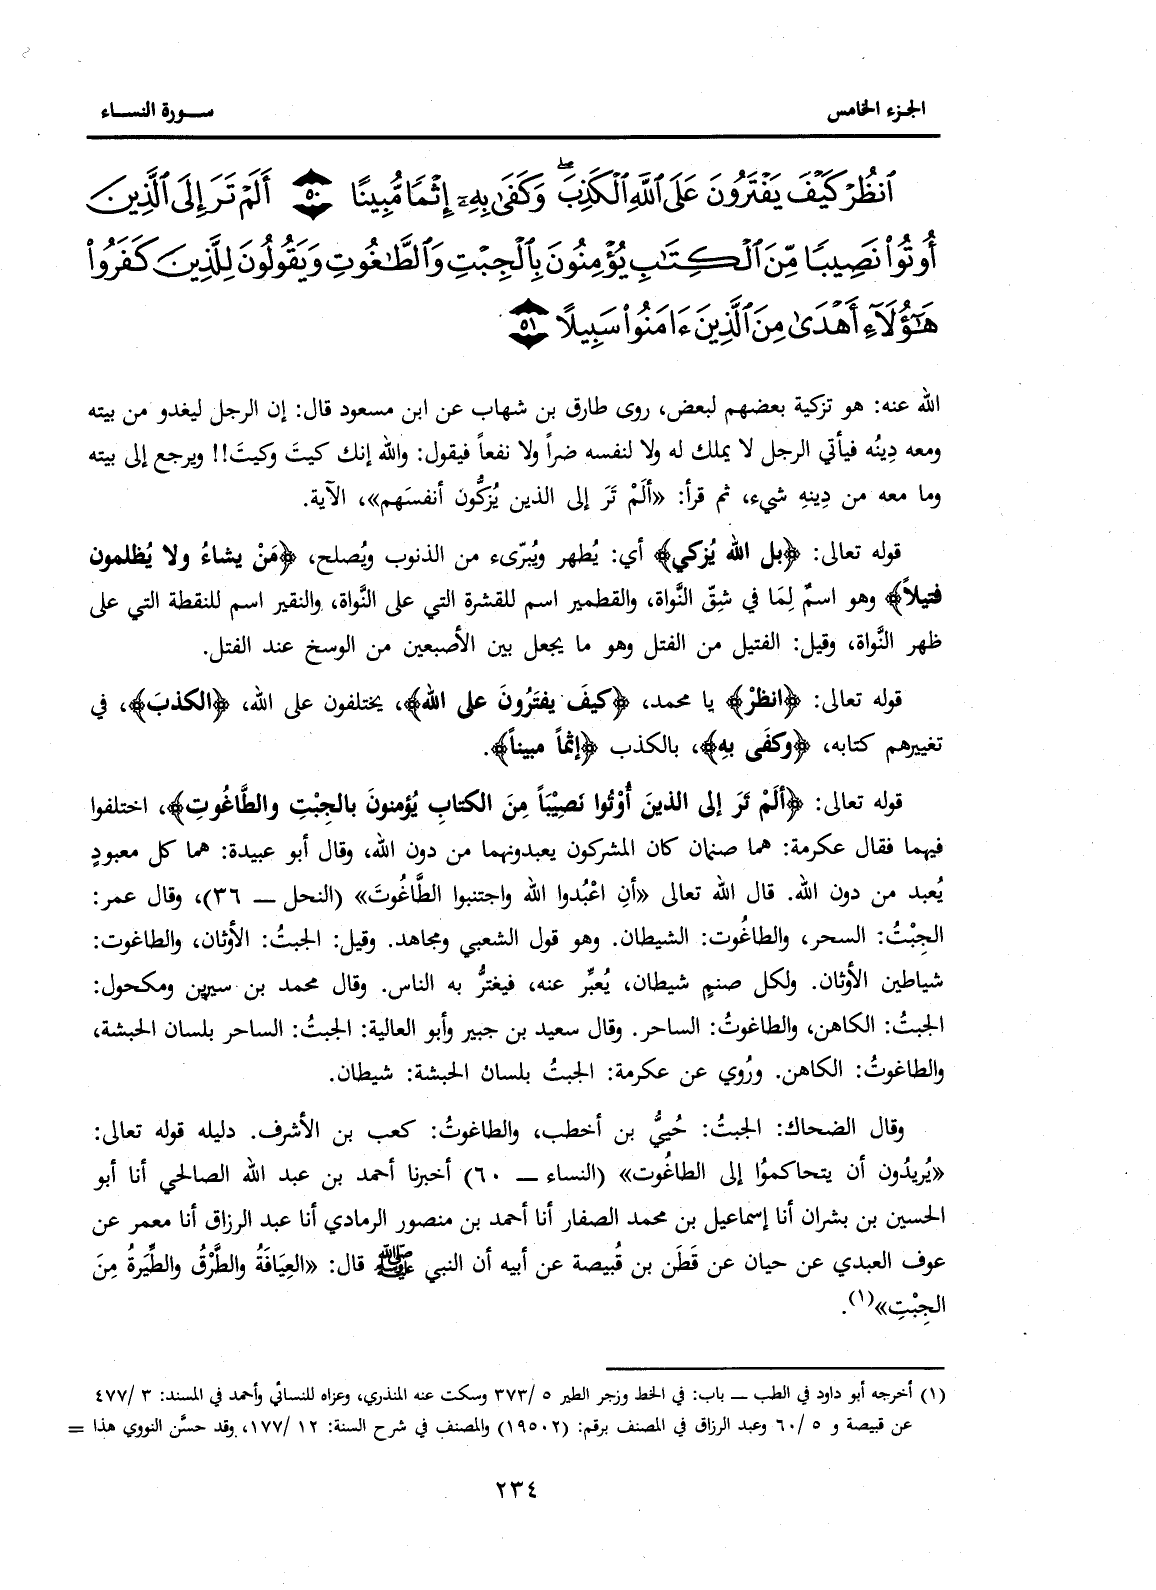 الجزء الخامس
سورة النساء
ٱنظُرۡ كَيۡفَ يَفۡتَرُونَ عَلَى ٱللَّهِ ٱلۡكَذِبَۖ وَكَفَىٰ بِهِۦٓ إِثۡمٗا مُّبِينًا ٥٠ أَلَمۡ تَرَ إِلَى ٱلَّذِينَ
أُوتُواْ نَصِيبٗا مِّنَ ٱلۡكِتَٰبِ يُؤۡمِنُونَ بِٱلۡجِبۡتِ وَٱلطَّٰغُوتِ وَيَقُولُونَ لِلَّذِينَ كَفَرُواْ
هَٰٓؤُلَآءِ أَهۡدَىٰ مِنَ ٱلَّذِينَ ءَامَنُواْ سَبِيلًا ٥١
الله عنه: هو تزكية بعضهم لبعض، روى طارق بن شهاب عن ابن مسعود قال: إن الرجل ليغدو من بيته
ومعه دِينُه فيأتي الرجل لا يملك له ولا لنفسه ضراً ولا نفعاً فيقول: والله إنك كيتَ وكيتَ!! ويرجع إلى بيته
وما معه من دِينهِ شيء، ثم قرأ: «ألَمْ تَرَ إلى الذين يُزَكُّون أنفسَهم»، الآية.
قوله تعالى: ﴿بل الله يُزكي﴾ أي: يُطهر ويُبرّىء من الذنوب ويُصلح، ﴿مَنْ يشاءُ ولا يُظلمون
فتيلاً﴾ وهو اسمٌ لِمَا في شِقّ النَّواة، والقطمير اسم للقشرة التي على النَّواة، والنقير اسم للنقطة التي على
ظهر النَّواة، وقيل: الفتيل من الفتل وهو ما يجعل بين الأصبعين من الوسخ عند الفتل.
قوله تعالى: ﴿انظرْ﴾ يا محمد، ﴿كيفَ يفتَرُونَ على الله﴾، يختلفون على الله، ﴿الكذبَ﴾، في
تغييرهم كتابه، ﴿وكفَى بهِ﴾، بالكذب ﴿إثماً مبيناً﴾.
قوله تعالى: ﴿ألَمْ تَرَ إلى الذينَ أُوْتُوا نَصِيْبَاً مِنَ الكتابِ يُؤمنونَ بالجِبْتِ والطَّاغُوتِ﴾، اختلفوا
فيهما فقال عكرمة: هما صنمان كان المشركون يعبدونهما من دون الله، وقال أبو عبيدة: هما كل معبودٍ
يُعبد من دون الله. قال الله تعالى «أنِ اعْبُدوا الله واجتنبوا الطَّاغُوتَ» (النحل ـ ٣٦)، وقال عمر:
الجِبْتُ: السحر، والطاغُوت: الشيطان. وهو قول الشعبي ومجاهد. وقيل: الجبتُ: الأوثان، والطاغوت:
شياطين الأوثان. ولكل صنمٍ شيطان، يُعبِّر عنه، فيغترُّ به الناس. وقال محمد بن سيرين ومكحول:
الجبتُ: الكاهن، والطاغوتُ: الساحر. وقال سعيد بن جبير وأبو العالية: الجبتُ: الساحر بلسان الحبشة،
والطاغوتُ: الكاهن. ورُوي عن عكرمة: الجبتُ بلسان الحبشة: شيطان.
وقال الضحاك: الجبتُ: حُييُّ بن أخطب، والطاغوتُ: كعب بن الأشرف. دليله قوله تعالى:
«يُريدُون أن يتحاكموُا إلى الطاغُوت» (النساء ـ ٦٠) أخبرنا أحمد بن عبد الله الصالحي أنا أبو
الحسين بن بشران أنا إسماعيل بن محمد الصفار أنا أحمد بن منصور الرمادي أنا عبد الرزاق أنا معمر عن
عوف العبدي عن حيان عن قَطَن بن قُبيصة عن أبيه أن النبي ﷺ قال: «العِيَافَةُ والطَّرْقُ والطِّيَرةُ مِنَ
الجِبْتِ»(١).
(١) أخرجه أبو داود في الطب ـ باب: في الخط وزجر الطير ٥ /٣٧٣ وسكت عنه المنذري، وعزاه للنسائي وأحمد في المسند: ٣ /٤٧٧
عن قبيصة و ٥ /٦٠ وعبد الرزاق في المصنف برقم: (١٩٥٠٢) والمصنف في شرح السنة: ١٢ /١٧٧، وقد حسَّن النووي هذا =
٢٣٤